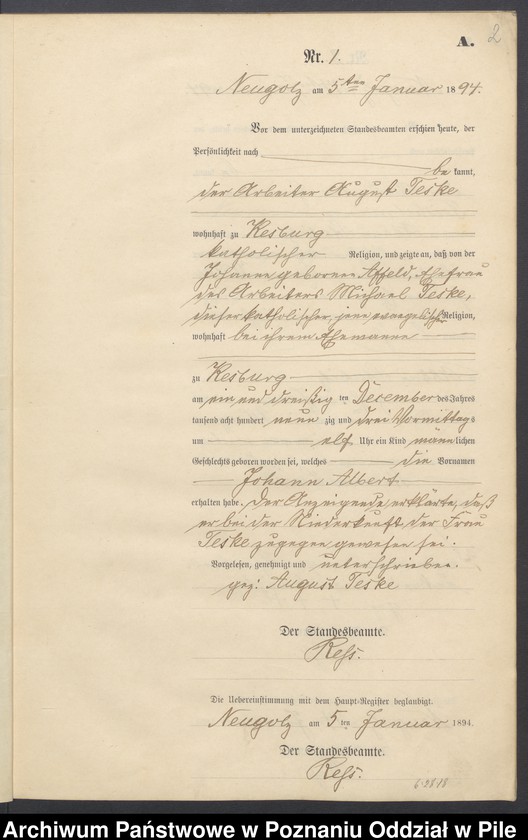 A. 2
Nr. 1.
Neugolz am 5ten Januar 1894.
Vor dem unterzeichneten Standesbeamten erschien heute, der
Persönlichkeit nach
be kannt,
der Arbeiter August Teske
wohnhaft zu Kesburg
katholischer Religion, und zeigte an, daß von der
Johanne geborenen Affeld, Ehefrau
des Arbeiters Michael Teske,
dieser katholischer, jene evangelischer Religion,
wohnhaft bei ihrem Ehemanne
zu Kesburg
am ein und dreißig ten December des Jahres
tausend acht hundert neun zig und drei Vormittags
um elf Uhr ein Kind männ lichen
Geschlechts geboren worden sei, welches die Vornamen
Johann Albert
erhalten habe. Der Anzeigende erklärte, daß
er bei der Niederkunft der Frau
Teske zugegen gewesen sei.
Vorgelesen, genehmigt und unterschrieben.
gez: August Teske
Der Standesbeamte.
Die Uebereinstimmung mit dem Haupt-Register beglaubigt.
Neugolz am 5 ten Januar 1894.
Der Standesbeamte.
Archiwum Państwowe w Poznaniu Oddział w Pile